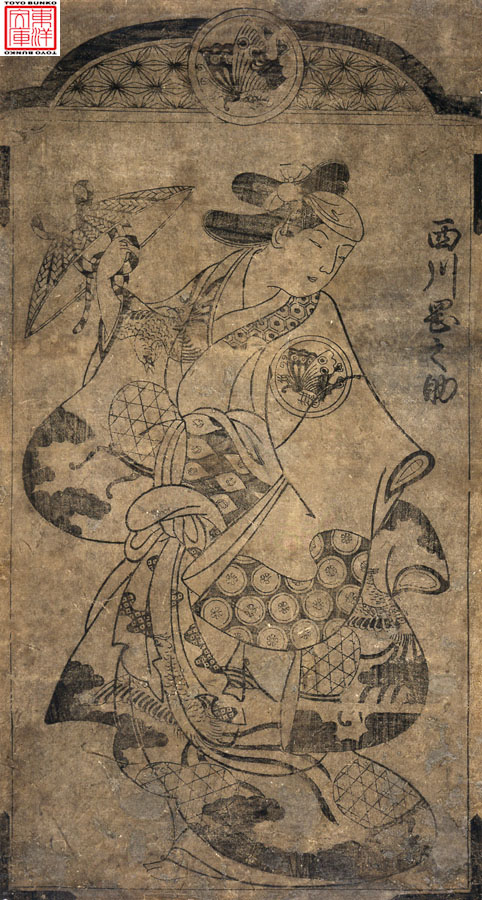 TOYO BUNKO
東洋
文庫
TOYO BUNKO
西川昆之助